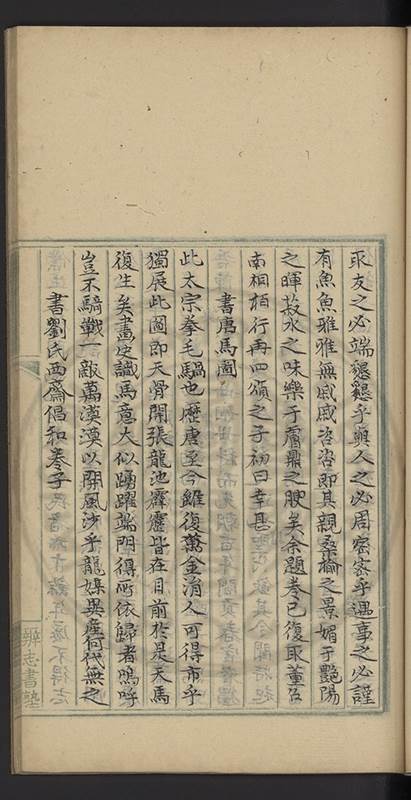 取友之必端懇懇乎與人之必周密密乎遇事之必謹
有魚魚雅雅無戚戚咨咨即其親桑榆之景媚于艷陽
之暉菽水之味樂于膏鼎之腴矣余題卷已復取董召
南桐栢行再四頌之子初曰幸甚
書唐馬圖
此太宗拳毛騧也歷唐至今雖復萬金消人可得市乎
獨展此圖即天骨開張龍池霹靂皆在目前於是天馬
復生矣畫史識馬意大似踴躍端門得所依歸者嗚呼
豈不騎戰一敵萬漠漠以開風沙乎龍媒異產何代無之
書劉氏西齋倡和卷子
辨志書塾